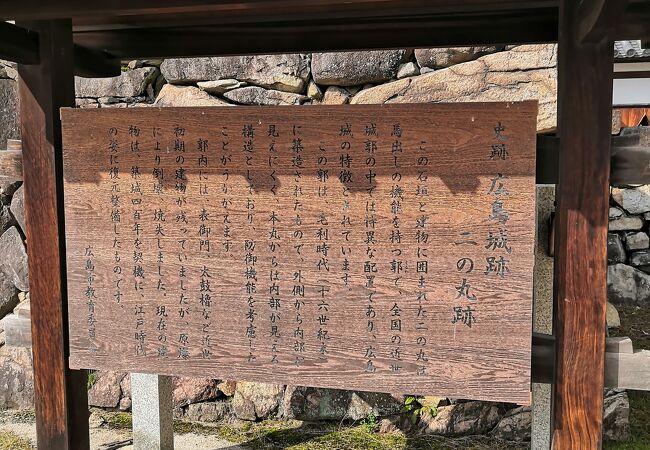 史跡 広島城跡
二の丸跡
この石垣と建物に囲まれた二の丸は
馬出しの機能を持つ郭で、全国の近世
城郭の中では特異な配置であり、広島
城の特徴とされています。
この郭は、毛利時代、十六世紀末
に築造されたもので、外側から内部が
見えにくく、本丸からは内部が見える
構造としており、防御機能を考慮した
ことがうかがえます。
郭内には、表御門、太鼓櫓など近世
初期の建物が残っていましたが、原爆
により倒壊、焼失しました。現在の建
物は、築城四百年を契機に、江戸時代
の姿に復元整備したものです。
広島市教育委員会